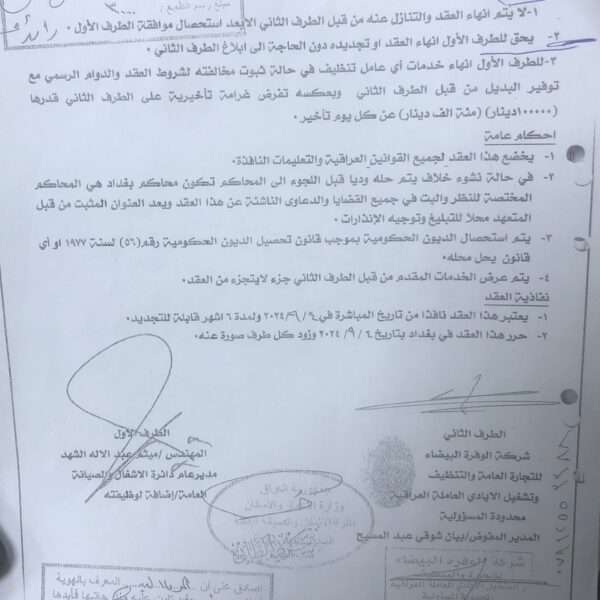 ١-لا يتم انهاء العقد والتنازل عنه من قبل الطرف الثاني الابعد استحصال موافقة الطرف الأول .
٢- يحق للطرف الأول انهاء العقد او تجديده دون الحاجة الى ابلاغ الطرف الثاني .
٣-للطرف الأول انهاء خدمات أي عامل تنظيف في حالة ثبوت مخالفته لشروط العقد والدوام الرسمي مع
توفير البديل من قبل الطرف الثاني وبعكسه تفرض غرامة تأخيرية على الطرف الثاني قدرها
(١٠٠٠٠٠دينار) (مئة الف دينار) عن كل يوم تأخير .
احكام عامة
١- يخضع هذا العقد لجميع القوانين العراقية والتعليمات النافذة.
٢- في حالة نشوء خلاف يتم حله وديا قبل اللجوء الى المحاكم تكون محاكم بغداد هي المحاكم
المختصة للنظر والبت في جميع القضايا والدعاوى الناشئة عن هذا العقد ويعد العنوان المثبت من قبل
المتعهد محلا للتبليغ وتوجيه الإنذارات .
٣- يتم استحصال الديون الحكومية بموجب قانون تحصيل الديون الحكومية رقم(٥٦) لسنة ١٩٧٧ او أي
قانون يحل محله.
٤- يتم عرض الخدمات المقدم من قبل الطرف الثاني جزء لايتجزء من العقد.
نفاذية العقد
١- يعتبر هذا العقد نافذا من تاريخ المباشرة في ٢٠٢٤/٩/٤ ولمدة ٦ اشهر قابلة للتجديد.
٢- حرر هذا العقد في بغداد بتاريخ ٢٠٢٤/٩/٤ وزود كل طرف صورة عنه.
الطرف الثاني
شركة الوفرة البيضاء
للتجارة العامة والتنظيف
وتشغيل الايادي العاملة العراقية
محدودة المسؤولية
المدير المفوض/بيان شوقي عبد المسيح
الطرف الأول
المهندس /ميثم عبد الاله الشهد
مدير عام دائرة الاشغال والصيانة
العامة/إضافة لوظيفته
جمهورية العراق
شركة الوفرة البيضاء